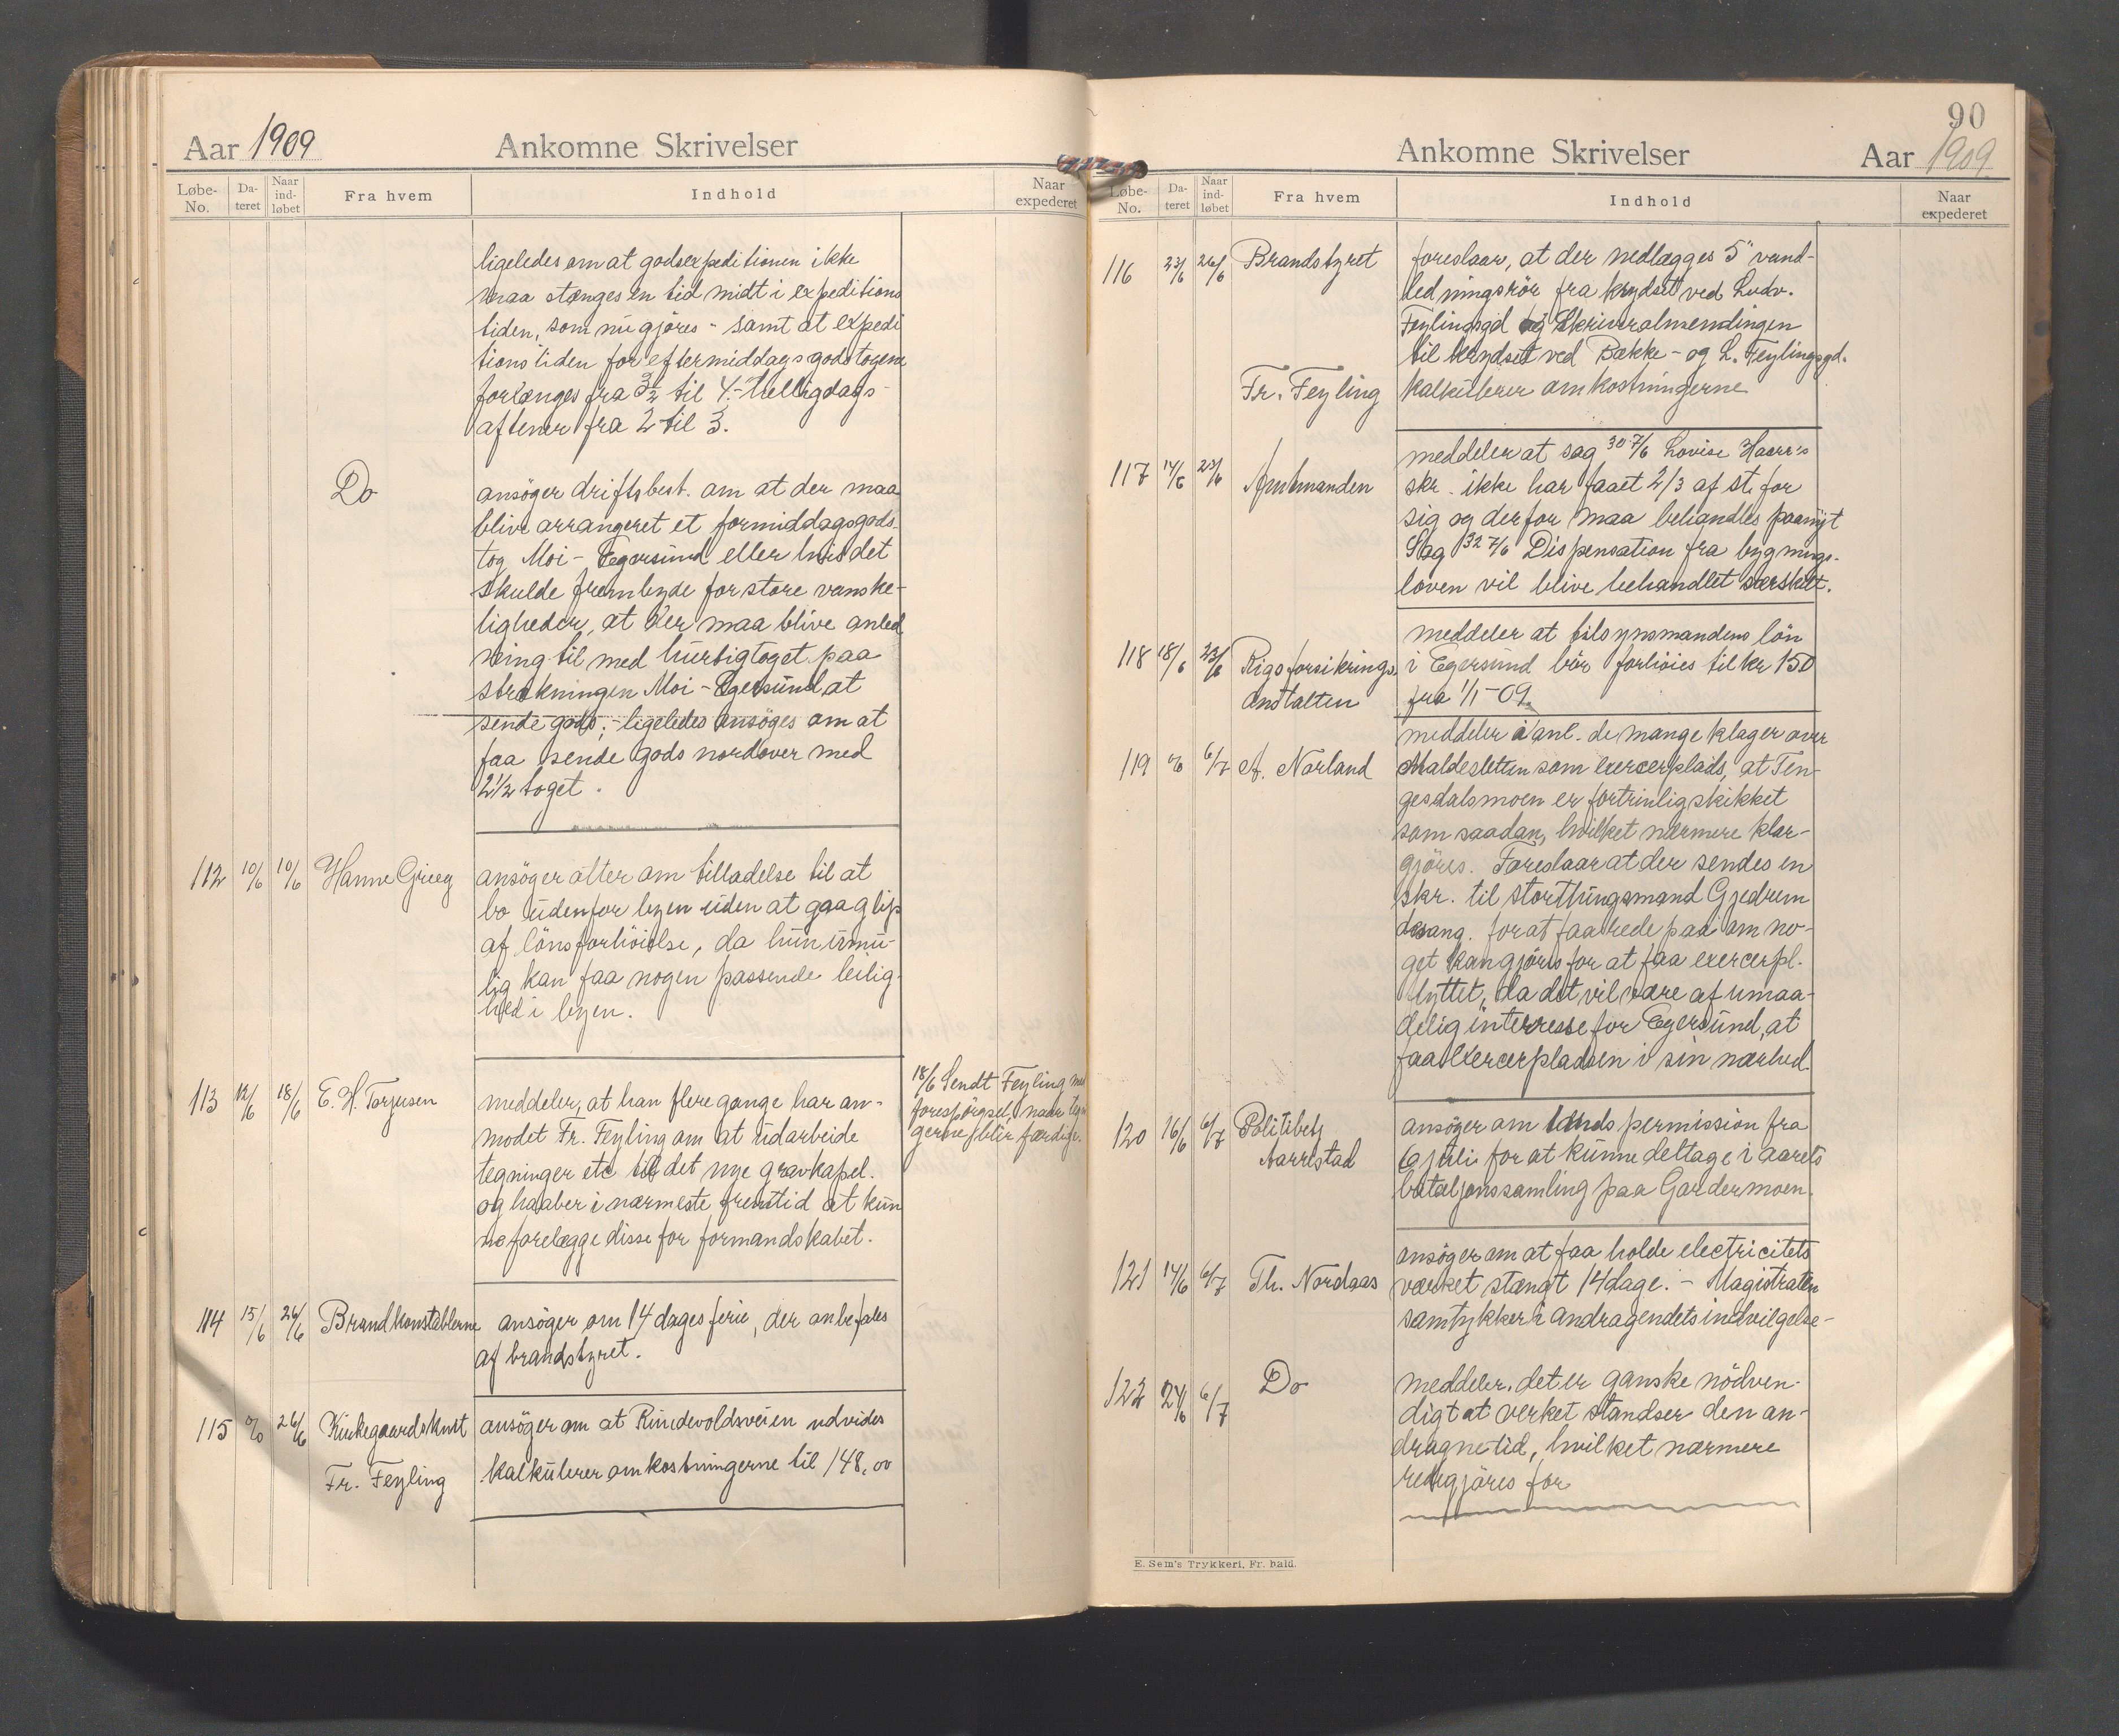 Aar 1909 Ankomne Skrivelser
Løbe-No. Da-teret Naar ind-løbet Fra hvem Indhold Naar expederet
ligeledes om at godsexpeditionen ikke
maa stænges en tid midt i expeditions
tiden, som nu gjöres - samt at expedi
tionstiden for eftermiddagsgodstogene
forlænges fra 3½ til 4.- Helligdags-
aftener fra 2 til 3.
Do ansöger driftsbest. om at der maa
blive arrangeret et formiddagsgods-
tog Moi - Egersund eller hvis det
skulde frembyde for store vanske-
ligheder, at der maa blive anled
ning til med hurtigtoget paa
strækningen Moi - Egersund at
sende gods; - ligeledes ansöges om at
faa sende gods nordover med
2½ toget.
112 10/6 10/6 Hanne Grieg ansöger atter om tilladelse til at
bo udenfor byen uden at gaa glip
af lönsforhöielse, da hun umu-
lig kan faa nogen passende leilig-
hed i byen.
113 12/6 18/6 E. H. Torjusen meddeler, at han flere gange har an-
modet Fr. Feyling om at udarbeide
tegninger etc til det nye gravkapel.
og haaber i nærmeste fremtid at kun
ne forelægge disse for formandskabet.
18/6 Sendt Feyling med
forespörgsel, naar
gerne blir færdige.
114 15/6 26/6 Brandkonstablerne ansöger om 14 dages ferie, der anbefales
af brandstyret.
115 % 26/6 Kirkegaardskmt ansöger om at Rundevoldsveien udvides
Fr. Feyling kalkulerer omkostningerne til 148,00
90
Ankomne Skrivelser Aar 1909
Løbe-No. Da-teret Naar ind-løbet Fra hvem Indhold Naar expederet
116 23/6 26/6 Brandstyret foreslaar, at der nedlægges 5" vand-
ledningsrör fra krydset ved Ludv.
Feylingsgd og Skriveralmendingen
til krydset ved Bække - og L. Feylingsgd.
Fr. Feyling kalkulerer omkostningerne
117 14/6 23/6 Amtmanden meddeler at sag 30 7/6 Lovise Haaer's
skr. ikke har faaet 2/3 af st. for
sig og derfor maa behandles paanyt
Sag 32 7/6 Dispensation fra bygnings-
loven vil blive behandlet særskilt.
118 18/6 23/6 Rigsforsikrings-
anstalten
meddeler at tilsynsmandens lön
i Egersund bör forhöies til kr 150
fra 1/1-09.
119 % 6/7 A. Norland meddeler i anl. de mange klager over
Maldesletten som exercerplads, at Ten-
gesdalsmoen er fortrinlig skikket
som saadan, hvilket nærmere klar-
gjöres. Foreslaar at der sendes en
skr. til storthingsmand Gjedrem
desang. for at faa rede paa om no-
get kan gjöres for at faa exercerpl.
flyttet, da det vil være af umaa-
delig interesse for Egersund, at
faa Exercerpladsen i sin nærhed.
120 16/6 6/7 Politibetj
Aarrestad
ansöger om permission fra
6 juli for at kunne deltage i aarets
bataljonssamling paa Gardermoen.
121 14/6 6/7 Th. Nordaas ansöger om at faa holde electricitets
værket stængt 14 dage. - Magistraten
samtykker i andragendets indvilgelse -
122 24/6 6/7 Do meddeler, det er ganske nödven-
digt at verket standser den an-
dragne tid, hvilket nærmere
redegjöres for
E. Sem's Trykkeri, Fr. hald.